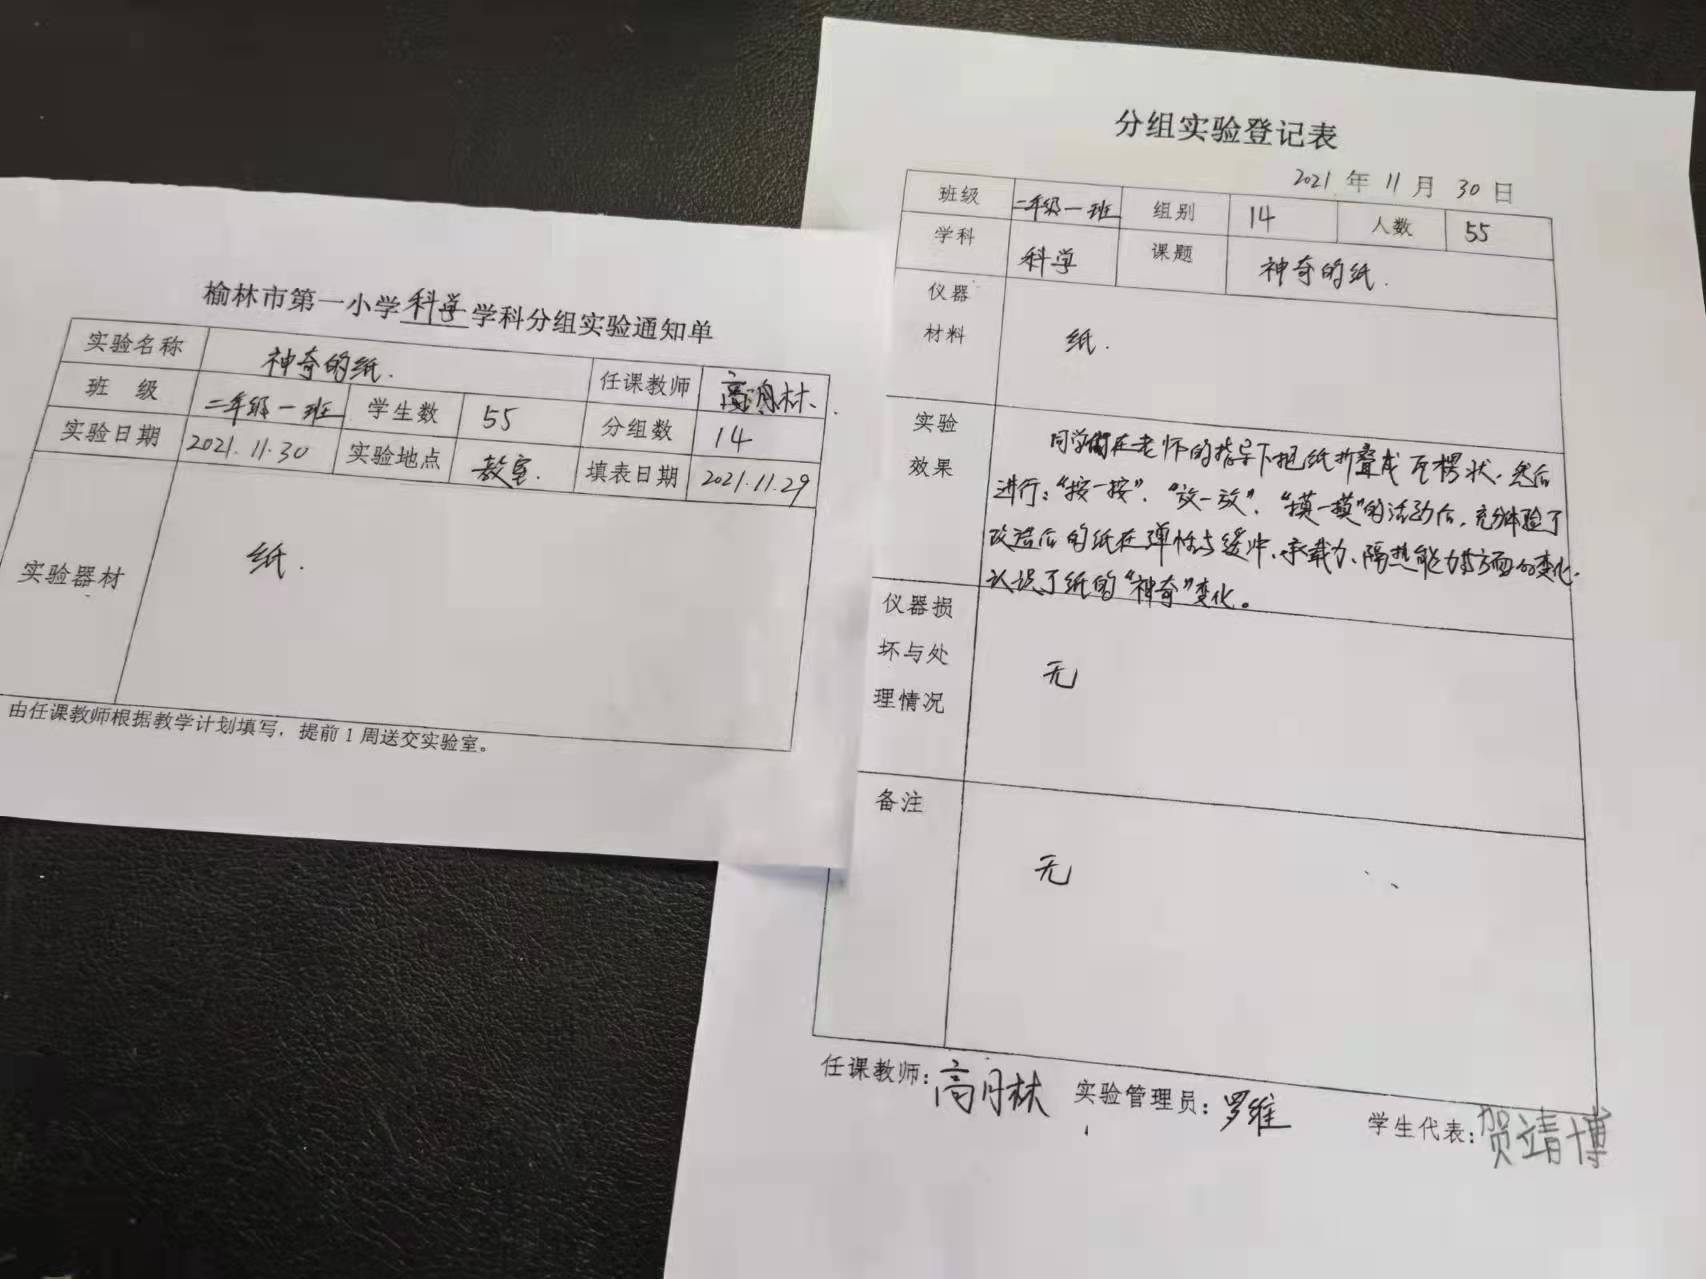 榆林市第一小学科学学科分组实验通知单
实验名称 神奇的纸. 任课教师 高月林
班 级 二年级一班 学生数 55 分组数 14
实验日期 2021.11.30 实验地点 教室. 填表日期 2021.11.29
实验器材 纸.
由任课教师根据教学计划填写，提前1周送交实验室。
分组实验登记表
2021 年 11 月 30 日
班级 二年级一班 组别 14 人数 55
学科 科学 课题 神奇的纸.
仪器
材料
纸.
实验
效果
同学们在老师的指导下把纸折叠成瓦楞状，然后
进行：“按一按”、“放一放”、“摸一摸”的活动后，充分体验了
改造后的纸在弹性与缓冲、承载力、隔热能力等方面的变化.
认识了纸的“神奇”变化。
仪器损
坏与处
理情况
无
备注
无
任课教师：高月林 实验管理员：罗维 学生代表：贺靖博